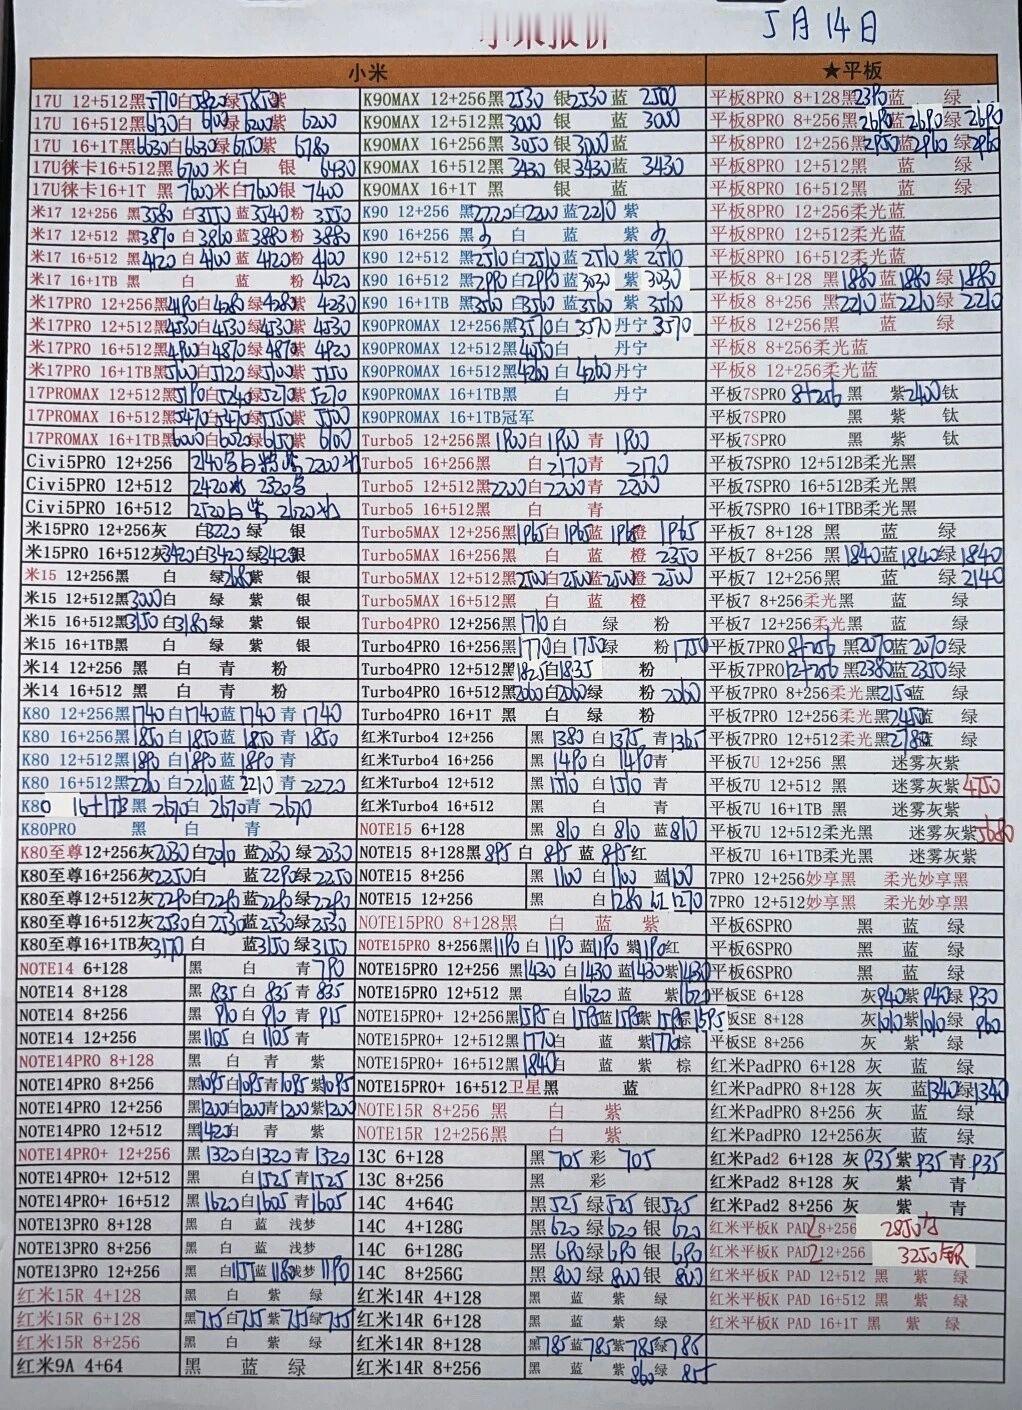 小米报价
5月14日
小米
17U 12+512黑5770白5820绿5850紫
17U 16+512黑6130白6100绿6200紫 6200
17U 16+1T黑6630白6630绿6750紫 6780
17U徕卡16+512黑6700米白 银 6430
17U徕卡16+1T 黑7600米白7600银 7400
米17 12+256 黑3580白3550蓝3540粉 3550
米17 12+512 黑3870白3860蓝3880粉 3880
米17 16+512 黑4120白4100蓝4120粉 4100
米17 16+1TB黑 白 蓝 粉 4620
米17PRO 12+256黑4190白4280绿4280紫 4230
米17PRO 12+512黑4530白4530绿4530紫 4530
米17PRO 16+512黑4900白4870绿4870紫 4920
米17PRO 16+1TB黑5100白5120绿5100紫 5150
17PROMAX 12+512黑5190白5240绿5270紫 5270
17PROMAX 16+512黑5470白5470绿5550紫 5500
17PROMAX 16+1TB黑6000白6020绿6150紫 6100
Civi5PRO 12+256
Civi5PRO 12+512 2420冰 2320乌
Civi5PRO 16+512 2520白紫 2620冰
米15PRO 12+256灰 白3220绿 银
米15PRO 16+512灰3420白3420绿3420银
米15 12+256黑 白 绿2680紫 银
米15 12+512黑3000白 绿 紫 银
米15 16+512黑3150白3180绿 紫 银
米15 16+1TB黑 白 绿 紫 银
米14 12+256 黑 白 青 粉
米14 16+512 黑 白 青 粉
K80 12+256黑1740白1740蓝1740青 1740
K80 16+256黑1850白1850蓝1850青 1850
K80 12+512黑1890白1890蓝1890青
K80 16+512黑2210白2210蓝2210青 2220
K80 16+1TB黑2670白2670青 2670
K80PRO 黑 白 青
K80至尊12+256灰2030白2010蓝2030绿2030
K80至尊16+256灰2250白 蓝2290绿2250
K80至尊12+512灰2290白2290蓝2290绿2290
K80至尊16+512灰2530白2530蓝2530绿2530
K80至尊16+1TB灰3170白 蓝3150绿3150
NOTE14 6+128 黑 白 青790
NOTE14 8+128 黑835白835青835
NOTE14 8+256 黑910白910青915
NOTE14 12+256 黑1105白1105青
NOTE14PRO 8+128 黑 白 青 紫
NOTE14PRO 8+256 黑1095白1095青1095紫1095
NOTE14PRO 12+256 黑1200白1200青1200紫1200
NOTE14PRO 12+512 黑1420白 青 紫
NOTE14PRO+ 12+256 黑1320白1320青1320
NOTE14PRO+ 12+512 黑 白1525青1525
NOTE14PRO+ 16+512 黑1620白1605青1605
NOTE13PRO 8+128 黑 白 蓝 浅梦
NOTE13PRO 8+256 黑 白 蓝 浅梦
NOTE13PRO 12+256 黑 白1155蓝1180浅梦1190
红米15R 4+128 黑 白 紫 绿
红米15R 6+128 黑755白755紫755绿755
红米15R 8+256 黑 白 紫 绿
红米9A 4+64 黑 蓝 绿
K90MAX 12+256黑2530银2530蓝 2500
K90MAX 12+512黑3000银 蓝 3000
K90MAX 16+256黑3050银3000蓝
K90MAX 16+512黑3430银3430蓝 3430
K90MAX 16+1T 黑 银 蓝
K90 12+256 黑2220白2200蓝2210紫
K90 16+256 黑 白 蓝 紫
K90 12+512 黑2510白2510蓝2510紫2510
K90 16+512 黑2990白2990蓝3030紫3030
K90 16+1TB黑3560白3560蓝3560紫3560
K90PROMAX 12+256黑3570白3570丹宁3570
K90PROMAX 12+512黑4050白 丹宁
K90PROMAX 16+512黑4260白4260丹宁
K90PROMAX 16+1TB黑 白 丹宁
K90PROMAX 16+1TB冠军
Turbo5 12+256黑1900白1900青 1900
Turbo5 16+256黑 白2170青 2170
Turbo5 12+512黑2200白2200青 2200
Turbo5 16+512黑 白 青
Turbo5MAX 12+256黑1965白1965蓝1965橙1965
Turbo5MAX 16+256黑 白 蓝 橙 2350
Turbo5MAX 12+512黑2500白2500蓝2500橙2500
Turbo5MAX 16+512黑 白 蓝 橙
Turbo4PRO 12+256黑1710白 绿 粉
Turbo4PRO 16+256黑1770白1750绿 粉1750
Turbo4PRO 12+512黑1825白1835 粉
Turbo4PRO 16+512黑2060白2060绿 粉2060
Turbo4PRO 16+1T 黑 白 绿 粉
红米Turbo4 12+256 黑1380白1375青1365
红米Turbo4 16+256 黑1490白1490青
红米Turbo4 12+512 黑1510白1510青
红米Turbo4 16+512 黑 白 青
NOTE15 6+128 黑810白810蓝810
NOTE15 8+128黑895白895蓝895红
NOTE15 8+256 黑1100白1100蓝1100
NOTE15 12+256 黑 白1280红1270
NOTE15PRO 8+128黑 白 蓝 紫
NOTE15PRO 8+256黑1190白1190蓝1190紫1190红
NOTE15PRO 12+256 黑1430白1430蓝1430紫1430
NOTE15PRO 12+512 黑 白1620蓝 紫1620
NOTE15PRO+ 12+256黑1595白1595蓝1595紫1595棕1595
NOTE15PRO+ 12+512黑1770白 蓝 紫1770棕
NOTE15PRO+ 16+512黑1840白 蓝 紫 棕
NOTE15PRO+ 16+512卫星黑 蓝
NOTE15R 8+256 黑 白 紫
NOTE15R 12+256黑 白 紫
13C 6+128 黑705彩705
13C 8+256 黑 彩
14C 4+64G 黑525绿525银525
14C 4+128G 黑620绿620银620
14C 6+128G 黑690绿690银690
14C 8+256G 黑800绿800银800
红米14R 4+128 黑 蓝 紫 绿
红米14R 6+128 黑 蓝 紫 绿
红米14R 8+128 黑785蓝785紫785绿785
红米14R 8+256 黑 蓝 紫860绿855
★平板
平板8PRO 8+128黑2390蓝 绿
平板8PRO 8+256黑2690蓝2690绿2690
平板8PRO 12+256黑2950蓝2960绿2960
平板8PRO 12+512黑 蓝 绿
平板8PRO 16+512黑 蓝 绿
平板8PRO 12+256柔光蓝
平板8PRO 12+512柔光蓝
平板8PRO 16+512柔光蓝
平板8 8+128 黑1880蓝1880绿1880
平板8 8+256 黑2210蓝2210绿2210
平板8 12+256黑 蓝 绿
平板8 8+256柔光蓝
平板8 12+256柔光蓝
平板7SPRO 8+256 黑 紫2400钛
平板7SPRO 黑 紫 钛
平板7SPRO 黑 紫 钛
平板7SPRO 12+512B柔光黑
平板7SPRO 16+512B柔光黑
平板7SPRO 16+1TBB柔光黑
平板7 8+128 黑 蓝 绿
平板7 8+256 黑1840蓝1840绿1840
平板7 12+256黑 蓝 绿2140
平板7 8+256柔光黑 蓝 绿
平板7 12+256柔光黑 蓝 绿
平板7PRO 8+256黑2070蓝2070绿
平板7PRO 12+256黑2380蓝2350绿
平板7PRO 8+256柔光黑2150蓝 绿
平板7PRO 12+256柔光黑2450蓝 绿
平板7PRO 12+512柔光黑2780蓝 绿
平板7U 12+256 黑 迷雾灰紫
平板7U 12+512 黑 迷雾灰紫4750
平板7U 16+1TB 黑 迷雾灰紫
平板7U 12+512柔光黑 迷雾灰紫5680
平板7U 16+1TB柔光黑 迷雾灰紫
7PRO 12+256妙享黑 柔光妙享黑
7PRO 12+512妙享黑 柔光妙享黑
平板6SPRO 黑 蓝 绿
平板6SPRO 黑 蓝 绿
平板6SPRO 黑 蓝 绿
平板SE 6+128 灰940紫940绿930
平板SE 8+128 灰1010紫1010绿960
平板SE 8+256 灰 紫 绿
红米PadPRO 6+128 灰 蓝 绿
红米PadPRO 8+128 灰 蓝1340绿1340
红米PadPRO 8+256 灰 蓝 绿
红米PadPRO 12+256灰 蓝 绿
红米Pad2 6+128 灰935紫935青935
红米Pad2 8+128 灰 紫 青
红米Pad2 8+256 灰 紫 青
红米平板K PAD2 8+256
红米平板K PAD2 12+256 3250
红米平板K PAD 12+512 黑 紫 绿
红米平板K PAD 16+512 黑 紫 绿
红米平板K PAD 16+1T 黑 紫 绿